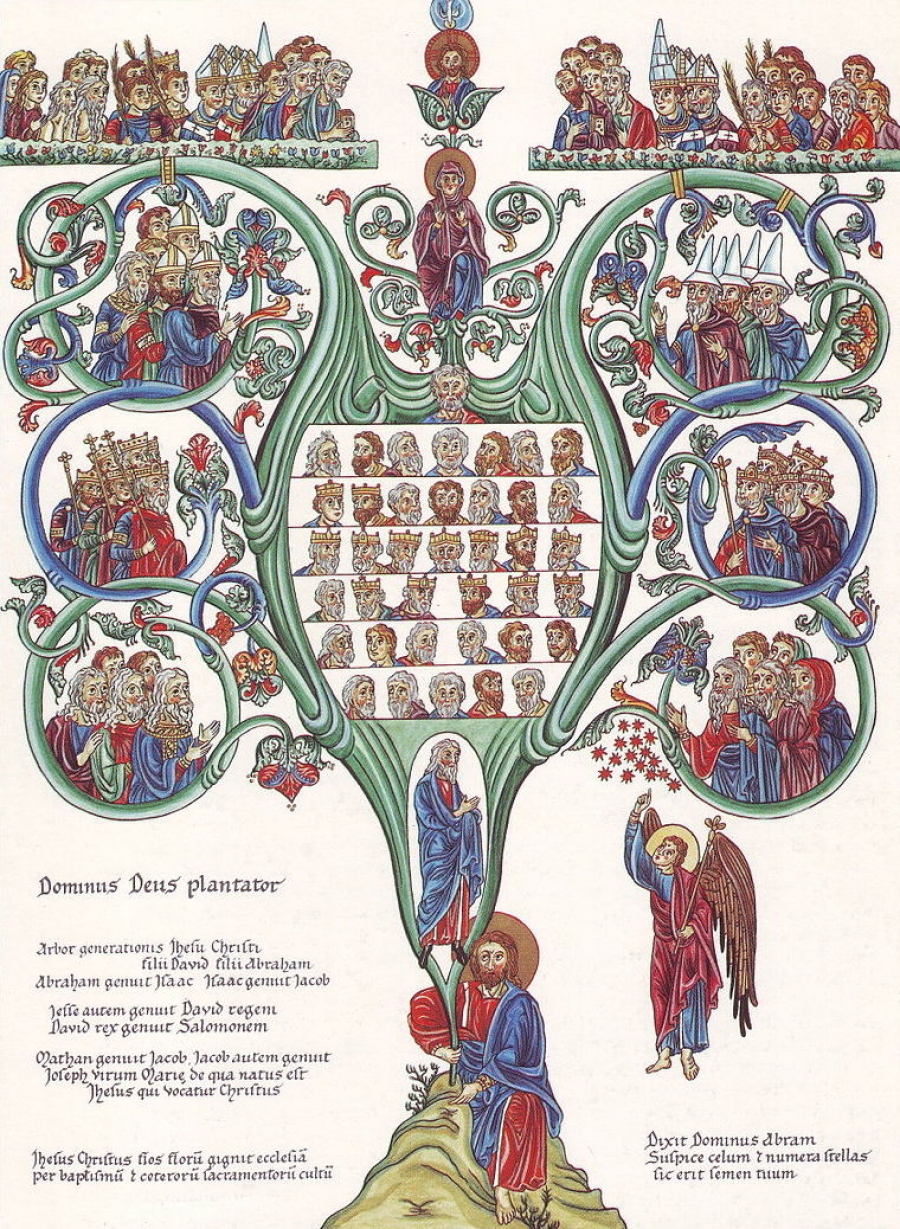 Dominus Deus plantator
Arbor generationis Jhesu Christi
filii David filii Abraham
Abraham genuit Isaac Isaac genuit Jacob
Jesse autem genuit David regem
David rex genuit Salomonem
Mathan genuit Jacob, Jacob autem genuit
Joseph virum Marie de qua natus est
Jhesus qui vocatur Christus
Jhesus Christus flos florū gignit ecclesiā
per baptismū ⁊ ceterorū sacramentorū cultū
Dixit Dominus Abram
Suspice celum ⁊ numera stellas
sic erit semen tuum